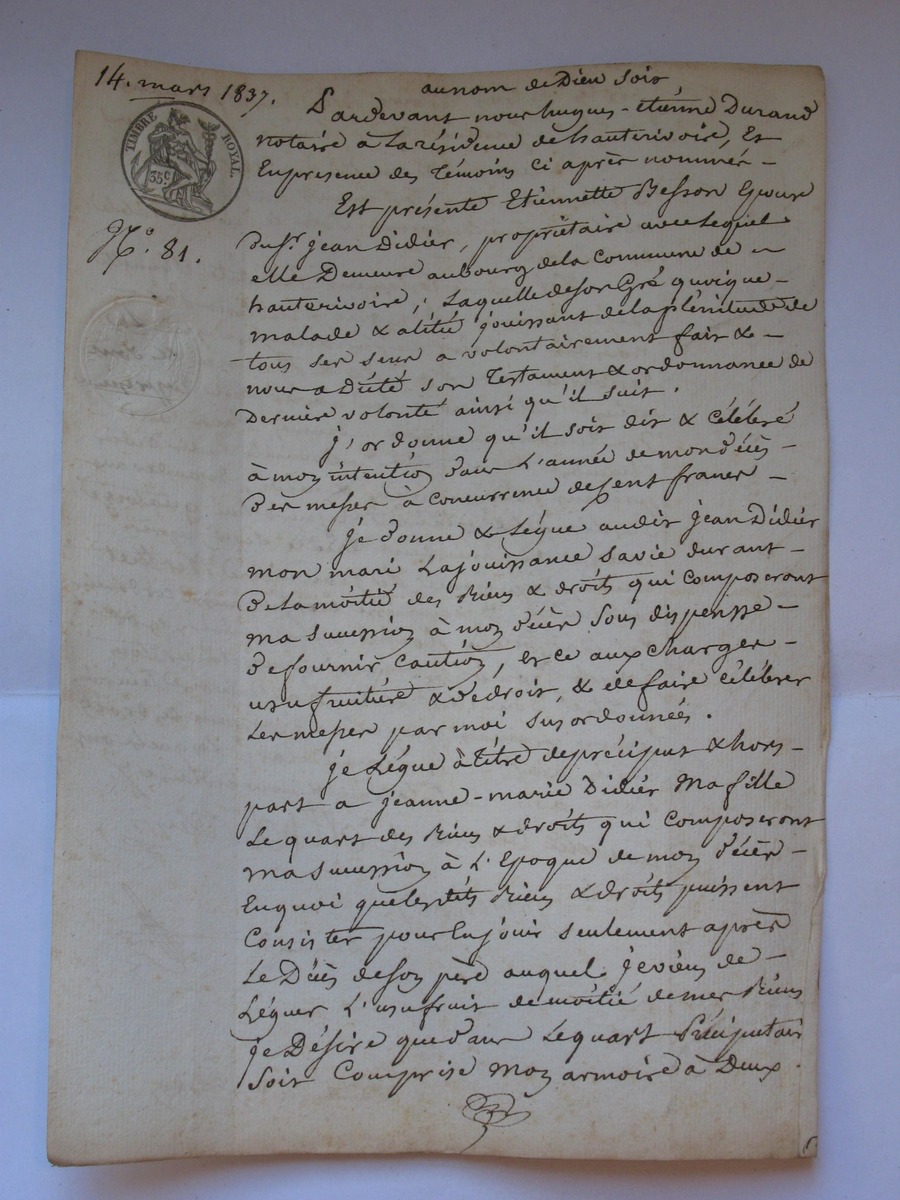 14. mars 1837.
au nom de Dieu soit
TIMBRE ROYAL
35 c
N.° 81.
Pardevant nous hugues-étienne Durand
notaire à La résidence de hauterivoire, Et
En présence des Témoins Ci après nommés -
Est présente Etiennette Besson Epouse
Du Sr. jean Didier, propriétaire avec Lequel
elle Demeure au bourg de la Commune de -
hauterivoire ; Laquelle de son Gré quoique -
malade & alitée jouissant de la plénitude de
tous ses sens a volontairement fait & -
nous a Dicté son Testament & ordonnance de
Dernière volonté ainsi qu'il suit.
j'ordonne qu'il soit dit & Célébré
à mon intention dans L'année de mon décès -
des messes à Concurrence de Cent francs -
je donne & Lègue audit jean Didier
mon mari La jouissance sa vie durant -
De la moitié des Biens & droits qui Composeront
ma succession à mon décès sous dispensse -
de fournir Caution, et ce aux charges -
usufruitière & de droit, & de faire Célébrer
Les messes par moi sus ordonnées.
je Lègue à titre de préciput & hors -
part a jeanne-marie Didier Ma fille
Le quart des Biens & droits qui Composeront
ma succession à L'Epoque de mon décès -
En quoi que lesdits Biens & droits puissent
Consister pour En jouir seulement après
Le Décès de son père auquel je viens de -
Léguer L'usufruit de moitié de mes Biens
je Désire que dans Le quart Préciputaire
soit Comprise mon armoire à Deux.